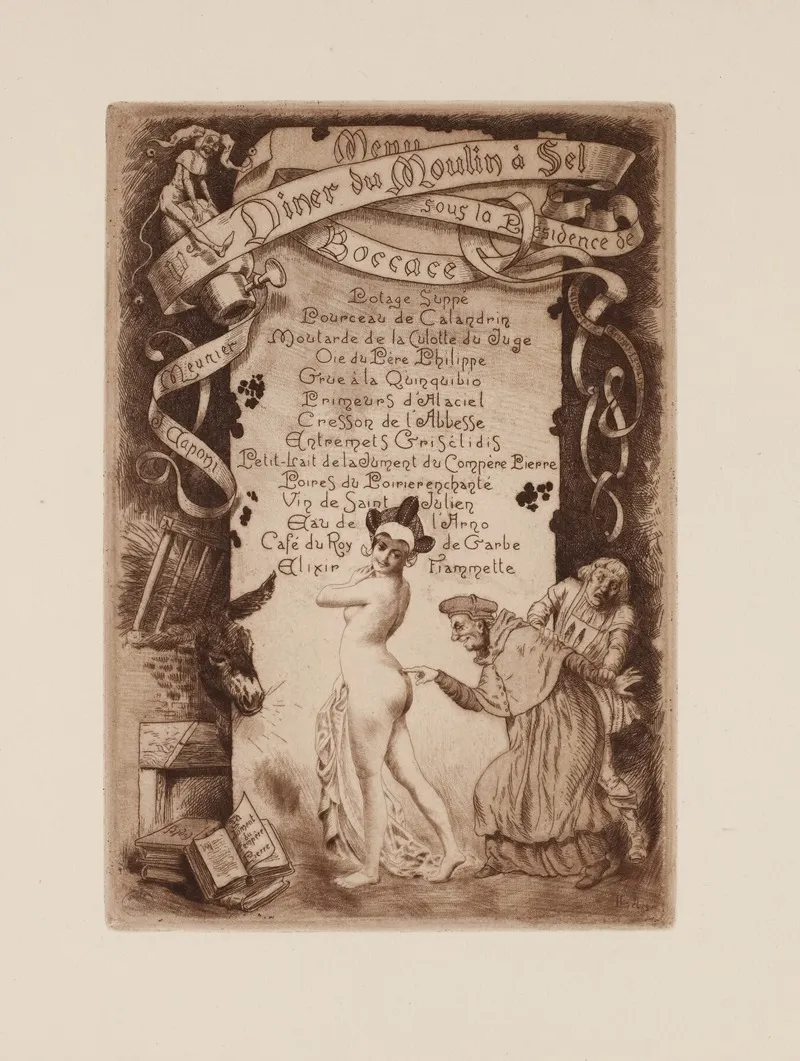 Menu
Vᵉ Diner du Moulin à Sel
sous la Présidence de
Boccace
Potage Suppé
Pourceau de Calandrin
Moutarde de la Culotte du Juge
Oie du Père Philippe
Grue à la Quinquibio
Primeurs d'Alaciel
Cresson de l'Abbesse
Entremets Grisélidis
Petit-lait de la Jument du Compère Pierre
Poires du Poirier enchanté
Vin de Saint Julien
Eau de l'Arno
Café du Roy de Garbe
Elixir Fiammette
Meunier
J Claponi
La
Jument
du
Compère
Pierre